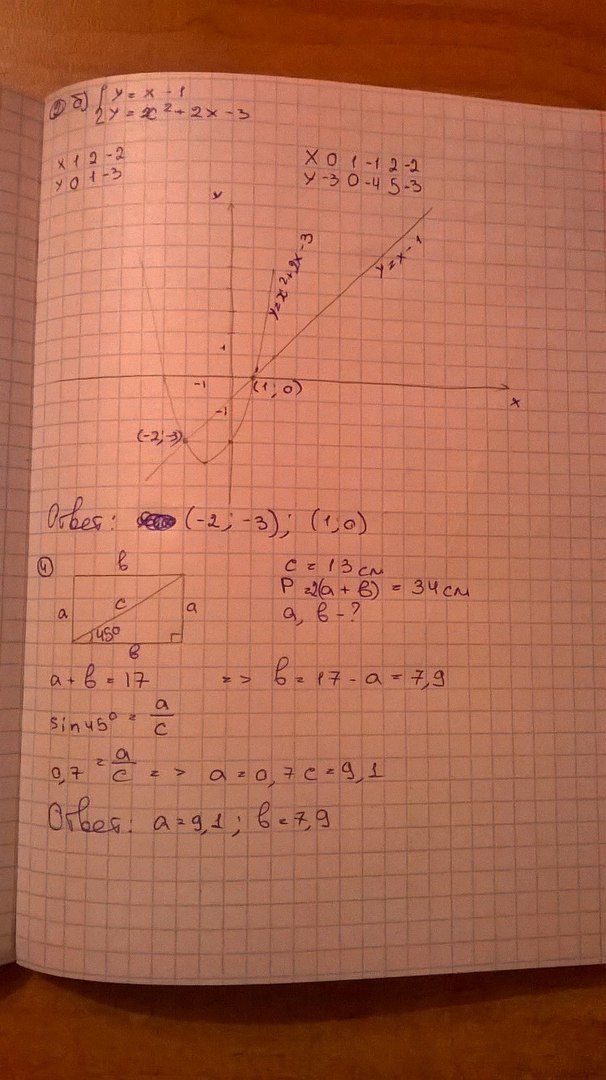 ② б) { y = x - 1
y = x² + 2x - 3
x 1 2 -2
y 0 1 -3
x 0 1 -1 2 -2
y -3 0 -4 5 -3
y
y = x² + 2x - 3
y = x - 1
1
-1
(1; 0)
x
-1
(-2; -3)
Ответ: (-2; -3); (1; 0)
④
в
a
c
a
45°
в
c = 13 см
P = 2(a + в) = 34 см
a, в - ?
a + в = 17 => в = 17 - a = 7,9
sin 45° = a/c
0,7 = a/c => a = 0,7 c = 9,1
Ответ: a = 9,1 ; в = 7,9